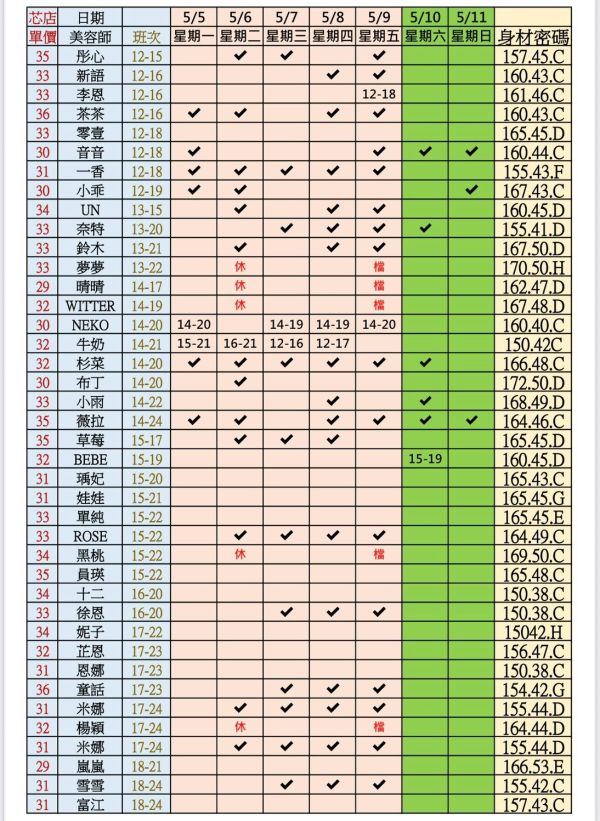 芯店 日期 5/5 5/6 5/7 5/8 5/9 5/10 5/11
單價 美容師 班次 星期一 星期二 星期三 星期四 星期五 星期六 星期日 身材密碼
35 彤心 12-15 ✓ ✓ ✓ 157.45.C
33 新語 12-16 ✓ ✓ 160.43.C
33 李恩 12-16 12-18 161.46.C
36 茶茶 12-16 ✓ ✓ ✓ ✓ 160.43.C
33 零壹 12-18 165.45.D
30 音音 12-18 ✓ ✓ ✓ ✓ 160.44.C
31 一香 12-18 ✓ ✓ ✓ ✓ ✓ 155.43.F
30 小乖 12-19 ✓ ✓ ✓ 167.43.C
34 UN 13-15 ✓ ✓ ✓ 160.45.D
33 奈特 13-20 ✓ ✓ ✓ ✓ 155.41.D
33 鈴木 13-21 ✓ ✓ ✓ 167.50.D
33 夢夢 13-22 休 檔 170.50.H
29 晴晴 14-17 休 檔 162.47.D
32 WITTER 14-19 休 檔 167.48.D
30 NEKO 14-20 14-20 14-19 14-19 14-20 160.40.C
32 牛奶 14-21 15-21 16-21 12-16 12-17 150.42C
32 杉菜 14-20 ✓ ✓ ✓ ✓ ✓ ✓ 166.48.C
30 布丁 14-20 ✓ 172.50.D
33 小雨 14-22 ✓ ✓ 168.49.D
35 薇拉 14-24 ✓ ✓ ✓ ✓ ✓ ✓ 164.46.C
35 草莓 15-17 ✓ ✓ ✓ 165.45.D
32 BEBE 15-19 15-19 160.45.D
31 瑀妃 15-20 165.43.C
31 娃娃 15-21 165.45.G
33 單純 15-22 165.45.E
33 ROSE 15-22 ✓ ✓ ✓ ✓ 164.49.C
34 黑桃 15-22 休 檔 169.50.C
35 員瑛 15-22 165.48.C
34 十二 16-20 150.38.C
33 徐恩 16-20 ✓ ✓ ✓ 150.38.C
34 妮子 17-22 15042.H
32 芷恩 17-22 156.47.C
31 恩娜 17-22 150.38.C
36 童話 17-23 ✓ ✓ ✓ 154.42.G
31 米娜 17-24 ✓ ✓ ✓ ✓ 155.44.D
32 楊穎 17-24 休 檔 164.44.D
31 米娜 17-24 ✓ ✓ ✓ ✓ 155.44.D
29 嵐嵐 18-21 166.53.E
31 雪雪 18-24 ✓ ✓ ✓ 155.42.C
31 富江 18-24 157.43.C